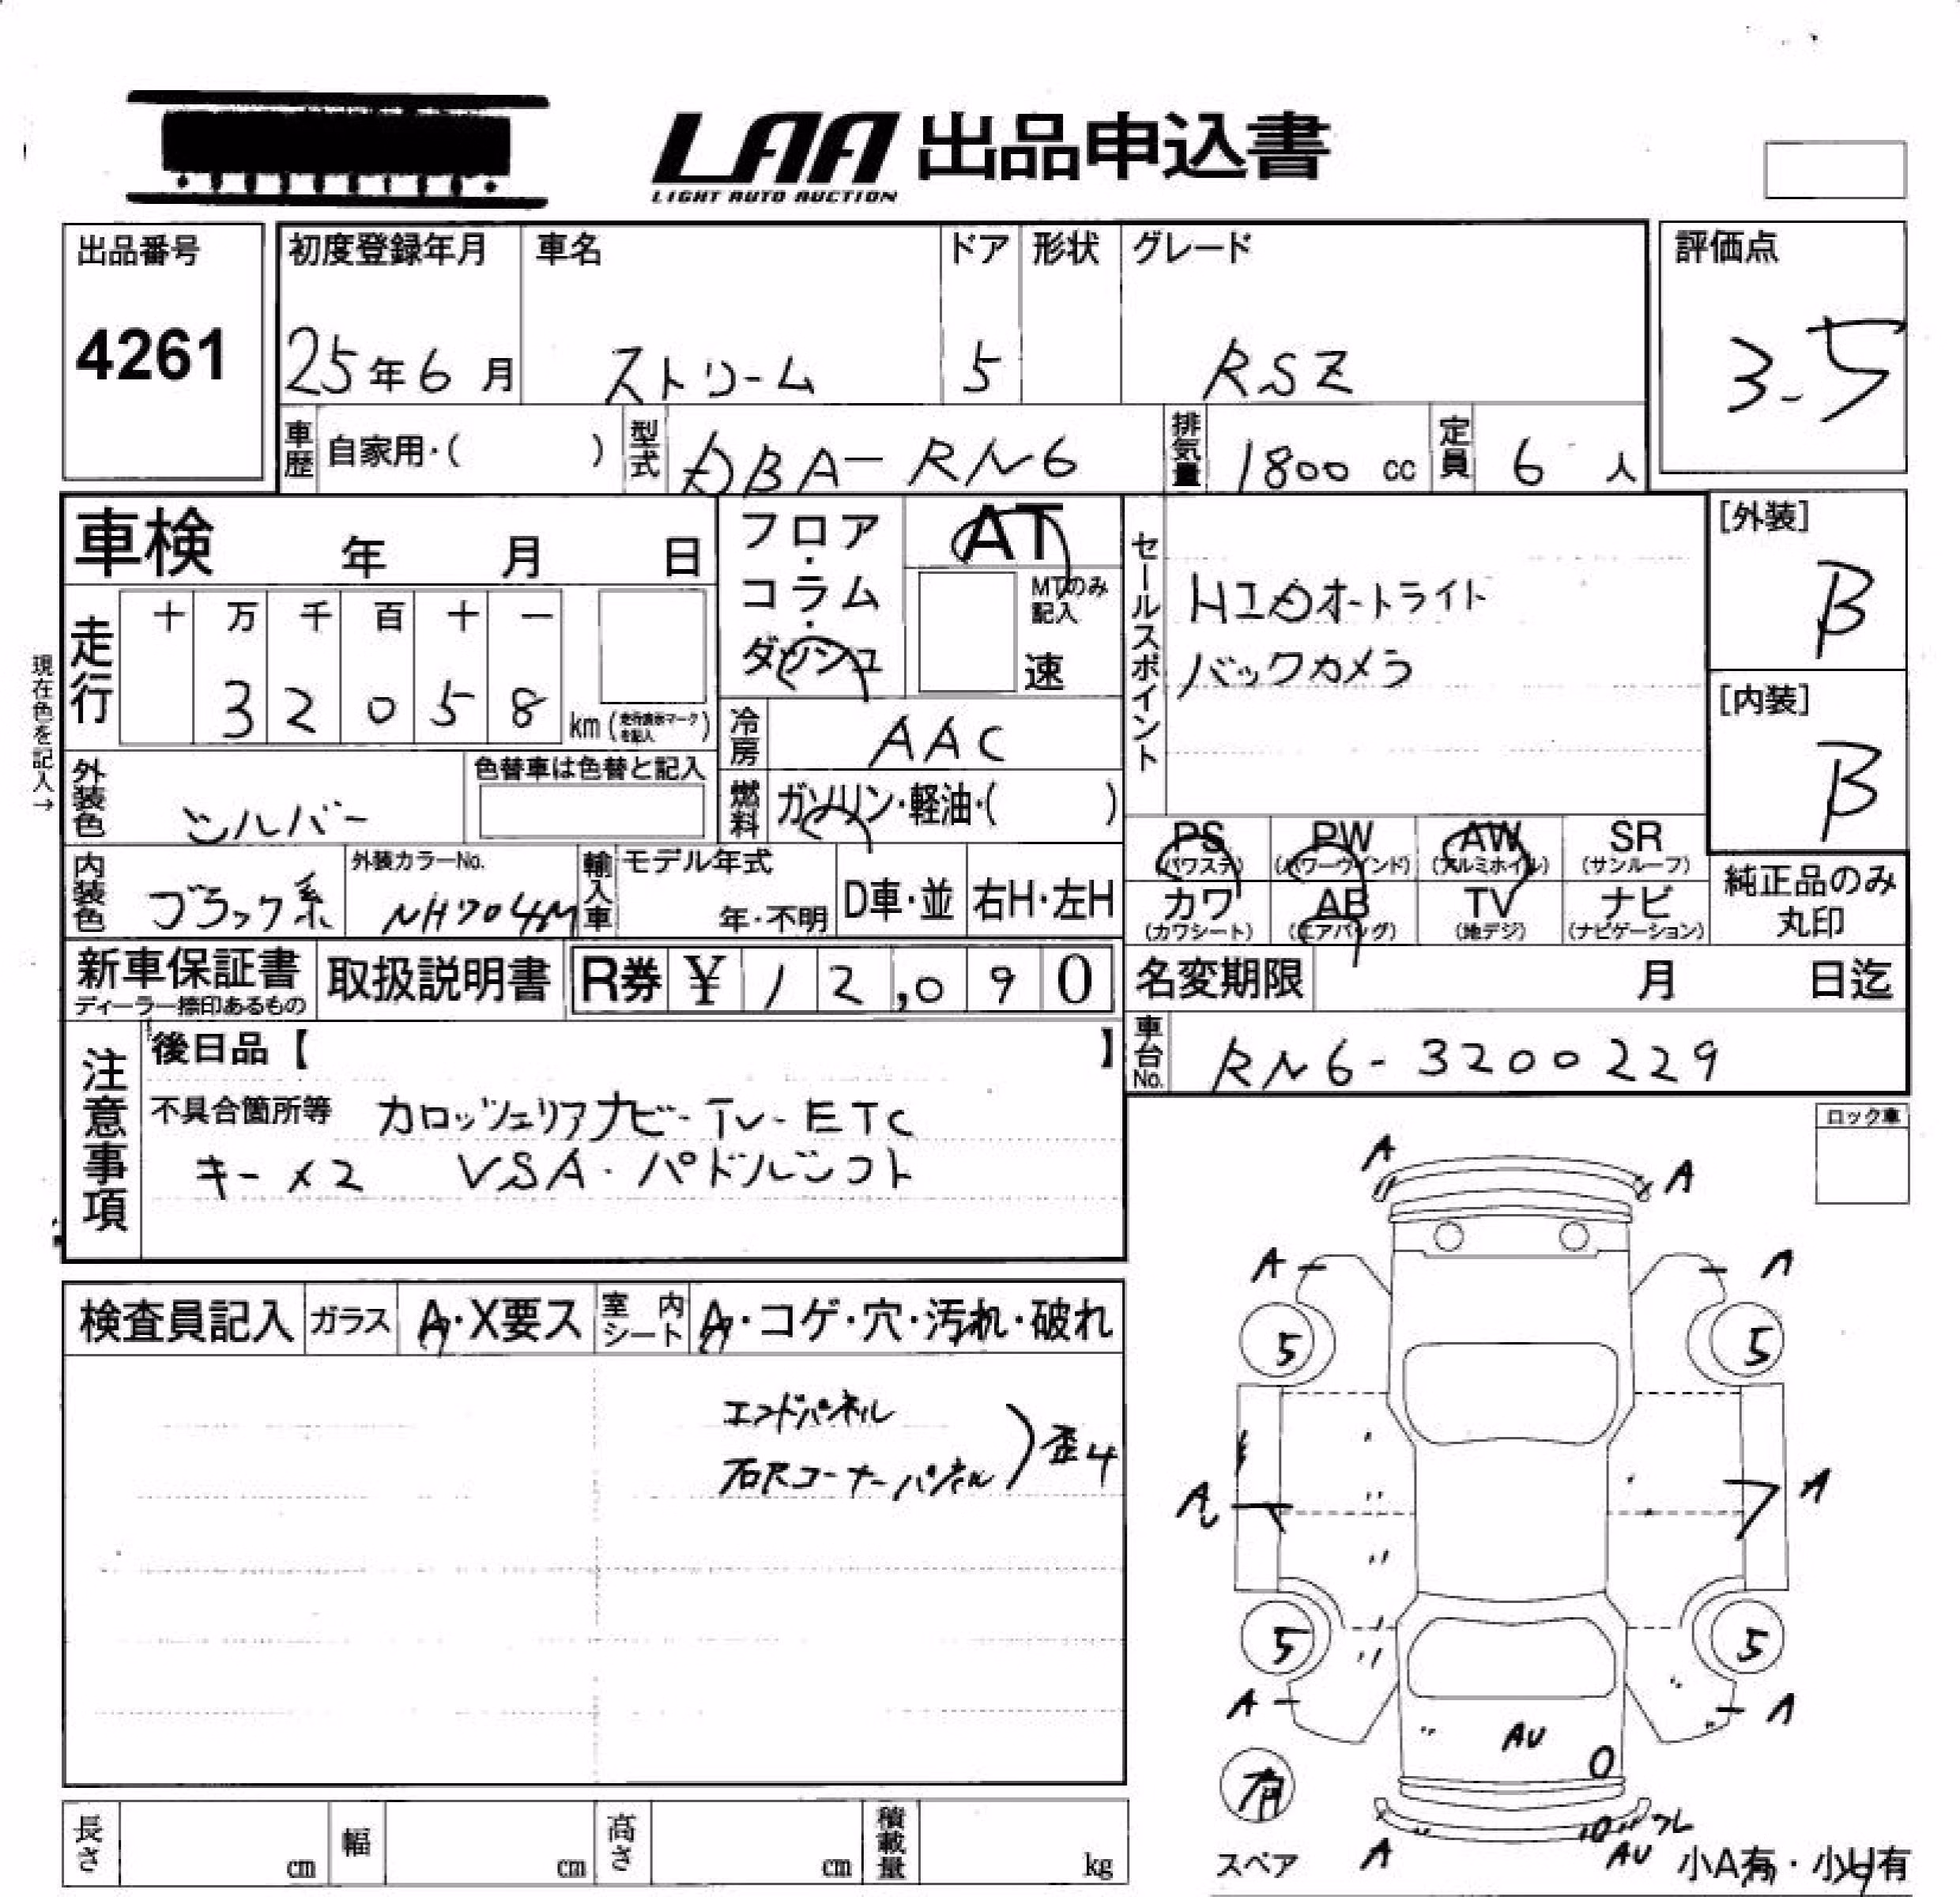 LAA 出品申込書
LIGHT AUTO AUCTION
出品番号 初度登録年月 車名 ドア 形状 グレード 評価点
4261 25年6月 ストリーム 5 RSZ 3.5
車歴 自家用・( ) 型式 DBA-RN6 排気量 1800 cc 定員 6 人
車検 年 月 日
フロア・コラム・ダッシュ
AT
MTのみ記入
速
セールスポイント
HIDオートライト
バックカメラ
[外装]
B
[内装]
B
現在色を記入→
走行 十 万 千 百 十 一
3 2 0 5 8 km (走行表示マークを記入)
冷房 AAC
外装色 シルバー 色替車は色替と記入
燃料 ガソリン・軽油・( )
PS (パワステ) PW (パワーウインド) AW (アルミホイル) SR (サンルーフ)
カワ (カワシート) AB (エアバッグ) TV (地デジ) ナビ (ナビゲーション)
純正品のみ
丸印
内装色 ブラック系 外装カラーNo. NH704M 輸入車 モデル年式 年・不明 D車・並 右H・左H
新車保証書 ディーラー捺印あるもの 取扱説明書 R券 ¥ 12,090
名変期限 月 日迄
車台No. RN6-3200229
注意事項
後日品【 】
不具合箇所等 カロッツェリアナビ-TV-ETC
キー×2 VSA・パドルシフト
ロック車
検査員記入 ガラス A・X要ス 室内シート A・コゲ・穴・汚れ・破れ
エンドパネル
右Rコーナーパネル
歪4
A A
A A
5 5
A A
5 5
A A
AU
有
スペア
A
AU
小A有・小U有
長さ cm 幅 cm 高さ cm 積載量 kg